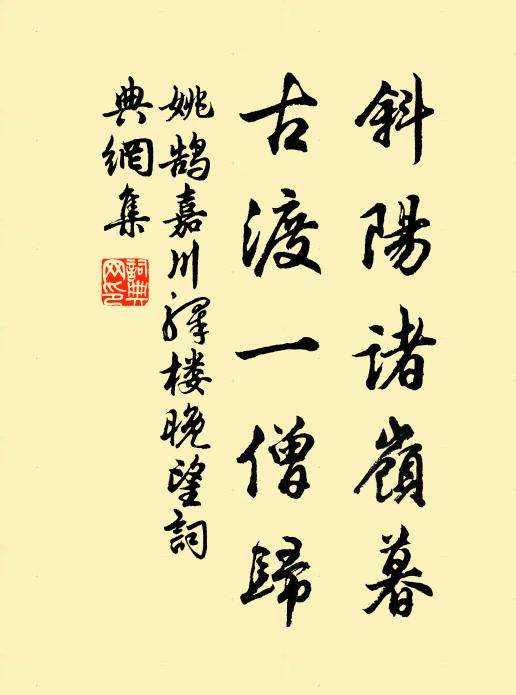 斜陽諸嶺暮
古渡一僧歸
姚鵠嘉川驛楼晚望詞
典網集
詞典网印